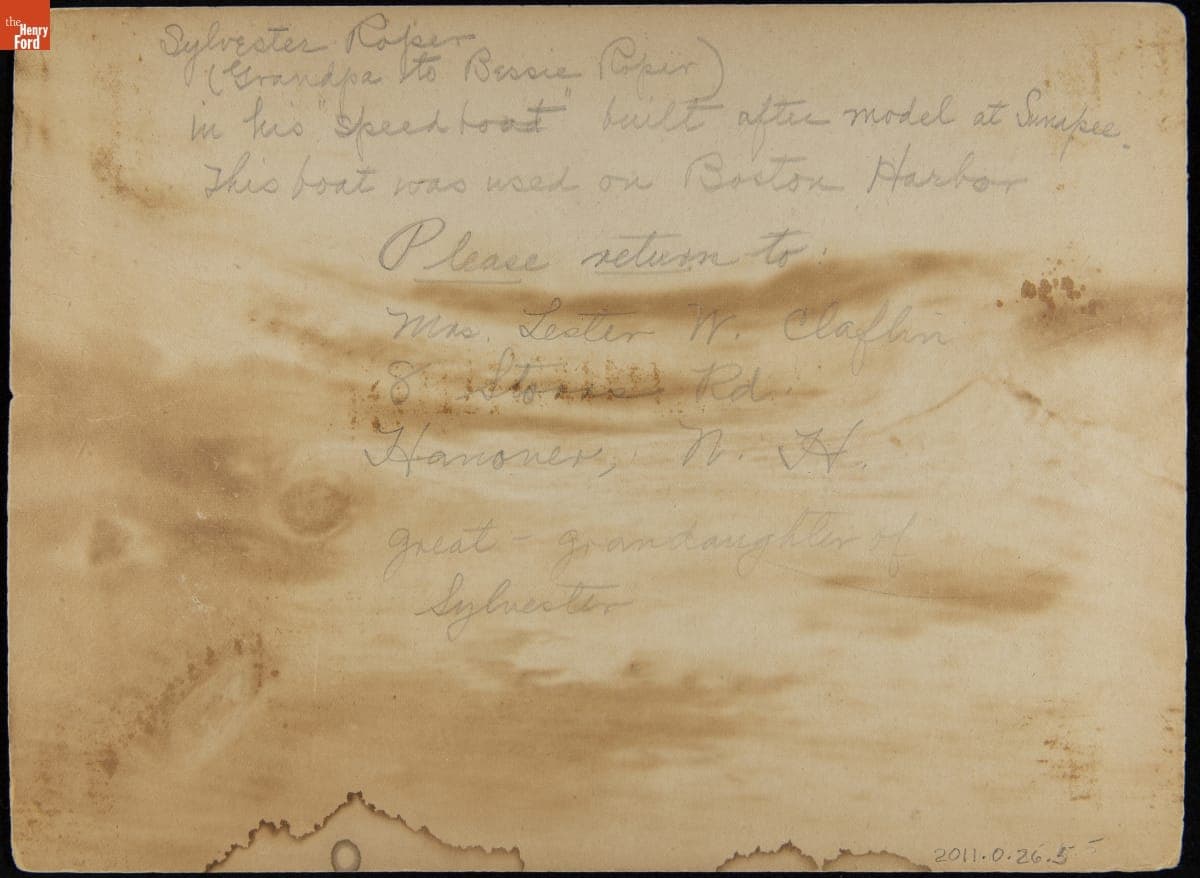 the
Henry
Ford
Sylvester Roper
(Grandpa to Bessie Roper)
in his "speed boat" built after model at Sunapee.
This boat was used on Boston Harbor
Please return to:
Mrs. Lester W. Claflin
8 Storrs Rd.
Hanover, N. H.
great - grandaughter of
Sylvester
2011.0.26.5